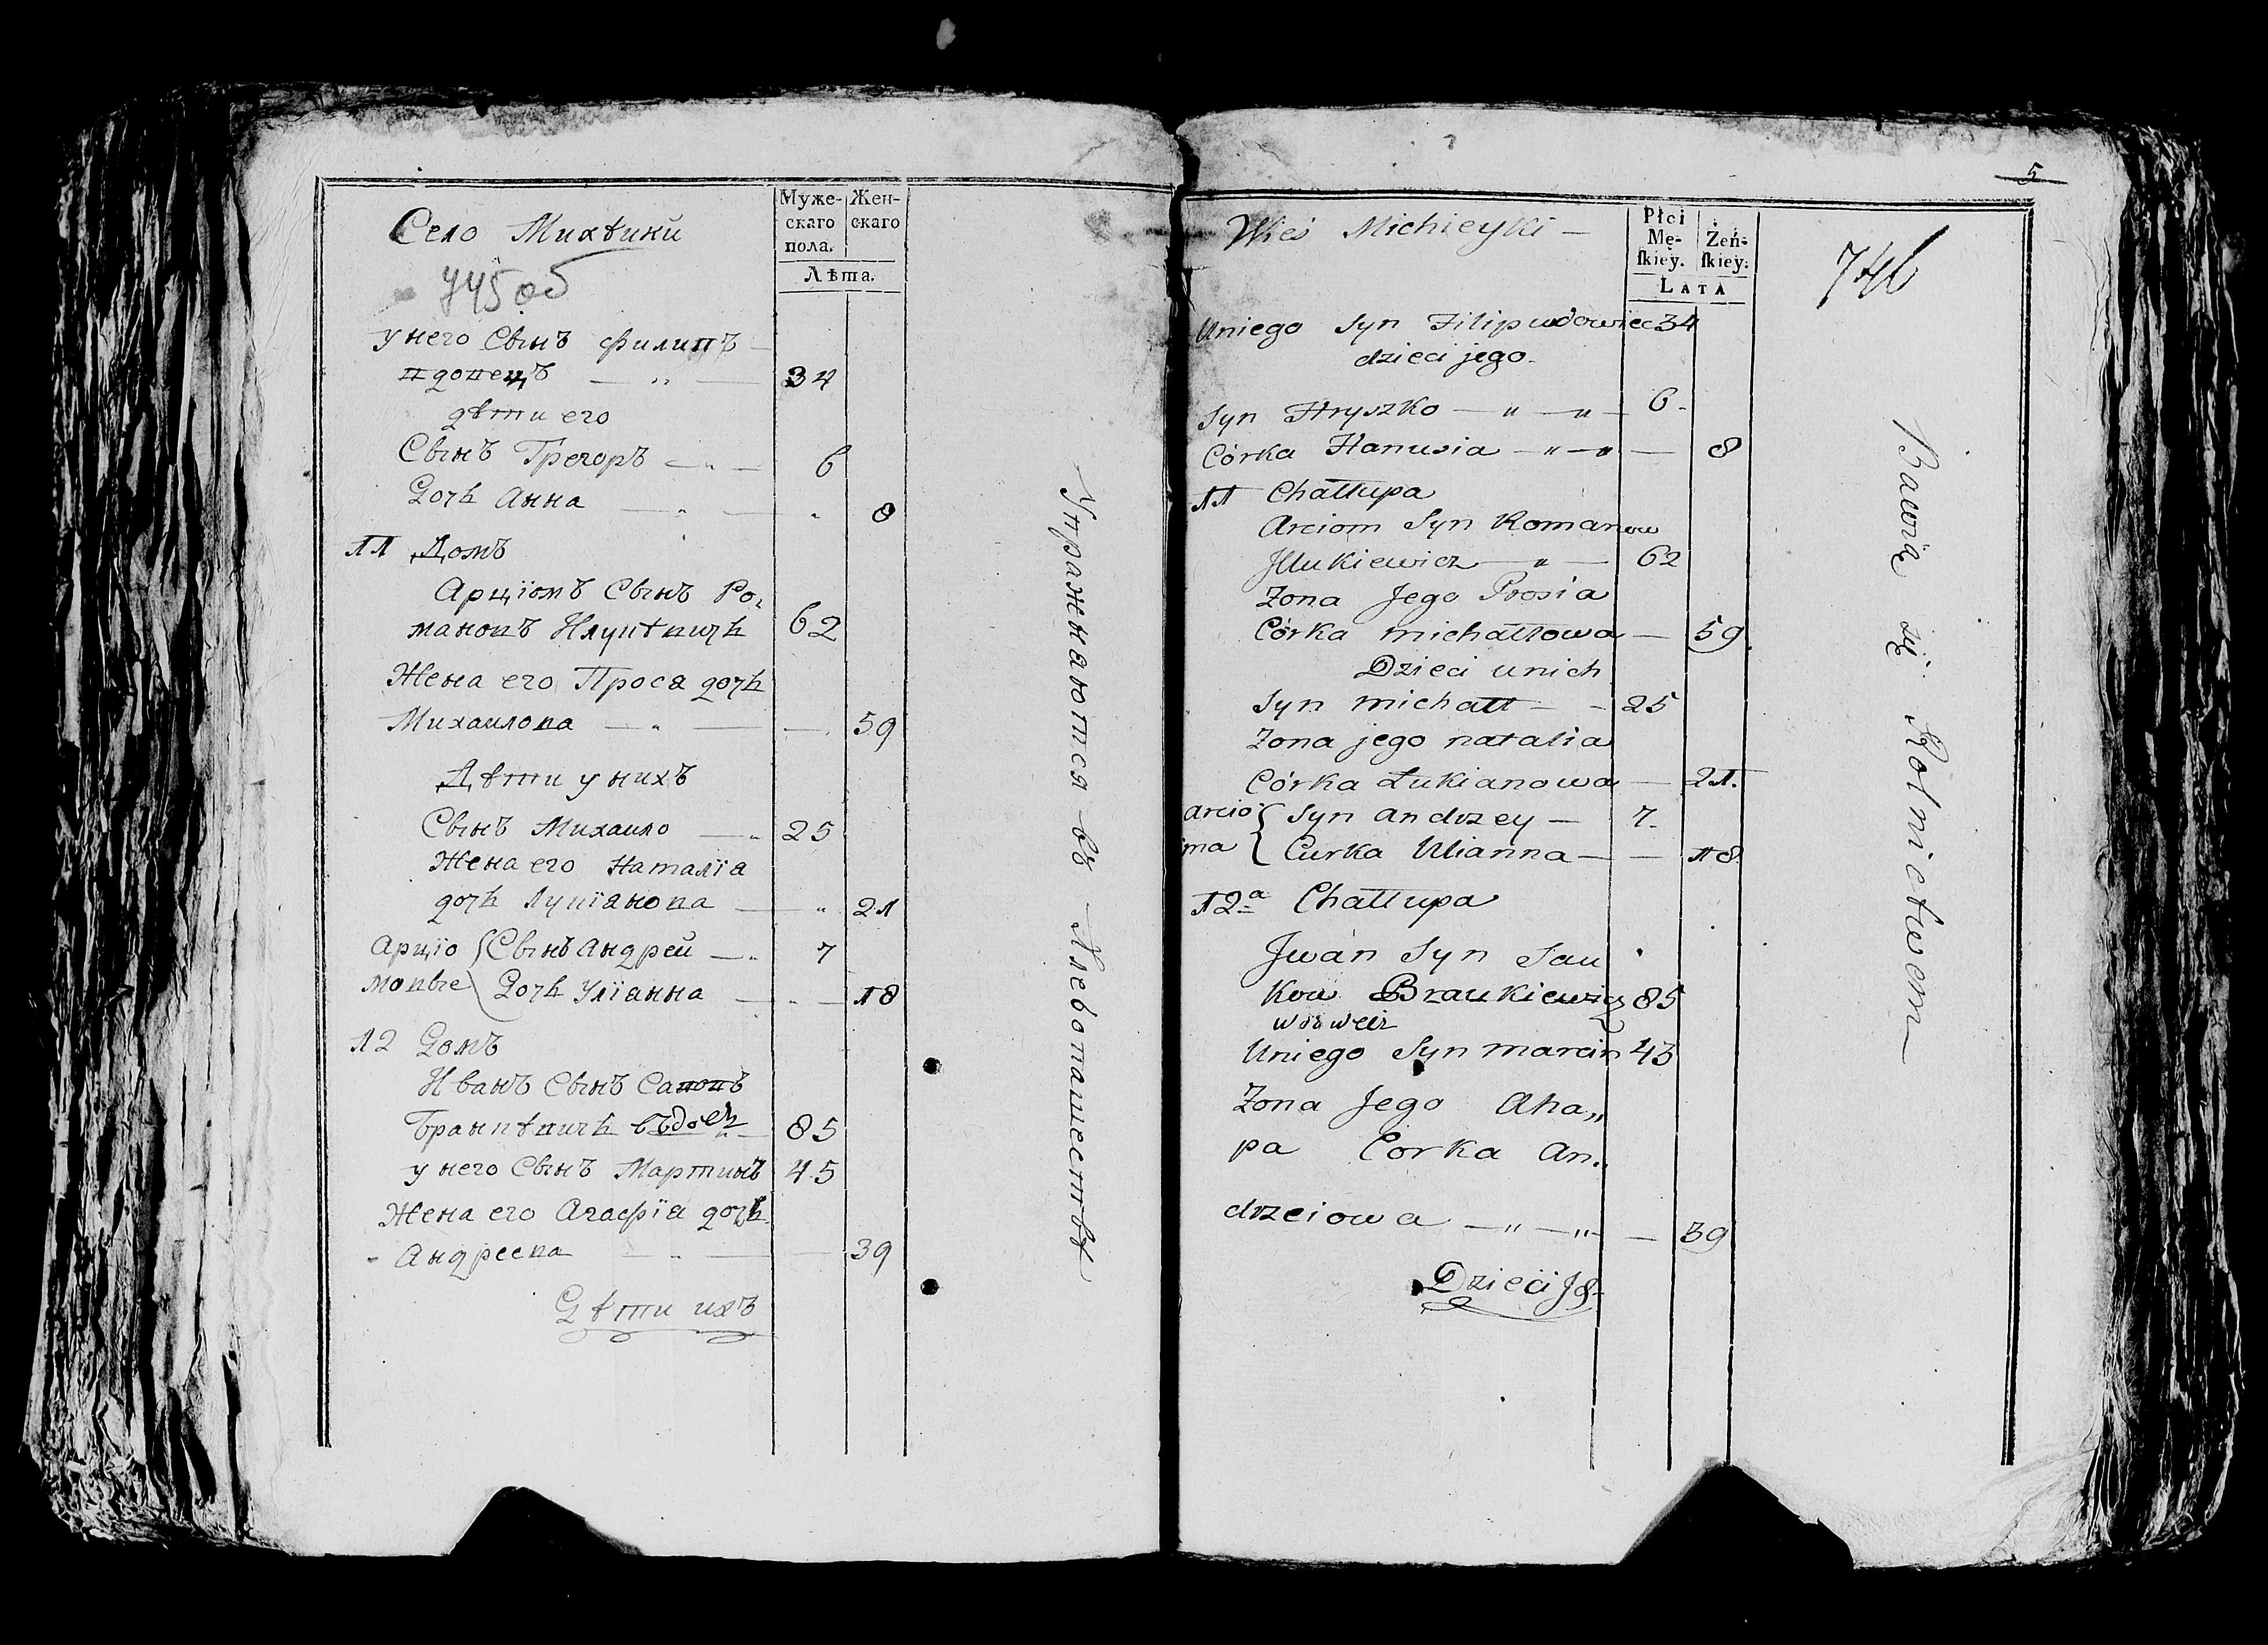 Село Михѣики
745 об
Муже-
скаго
пола.
Жен-
скаго
Лѣта.
у него Сынъ Филипъ —
вдовецъ — „ — 34
дѣти его
Сынъ Грегоръ — „ — 6
Дочь Анна — „ — „ 8
11 Домъ
Арціомъ Сынъ Ро„
мановъ Илукѣвичь 62
Жена его Прося дочь
Михаилова — „ — — 59
Дѣти у нихъ
Сынъ Михаило — „ 25
Жена его Наталїа
дочь Лукїанова — „ 21
Арціо { Сынъ Андрей — „ 7
мовы { Дочь Улїанна — „ — 18
12 Домъ
Иванъ Сынъ Савовъ
Бравкѣвичь въдовец — 85
у него Сынъ Мартинъ 45
Жена его Агафїа дочь
Андреева — „ — — 39
Дѣти ихъ
Упражнаются въ Хлебопашествѣ
5
Wieś Michieyki —
Płci
Mę-
ſkiey.
Żeń-
ſkiey.
LATA
746
Uniego Syn Filip wdowiec 34
dzieci jego
Syn Hryszko — „ — „ — 6 -
Córka Hanusia — „ — „ — 8
11 Chałłupa
Arciom Syn Romanow
Jllukiewicz — „ — 62
Zona Jego Prosia
Córka michałłowa — 59
Dzieci unich
Syn michałł — - 25
Zona jego natalia
Córka Łukianowa — 21.
arcio { Syn andrzey — 7 -
ma { Curka Ulianna — — 18
12a Chałłupa
Jwan Syn Sau
kow Braukiewicz 85
wdowiec
Uniego Syn marcin 45
Zona Jego Aha„
pa Corka An„
drzeiowa — „ — „ — 39
Dzieci J8-
Bawią się Rolnictwem —